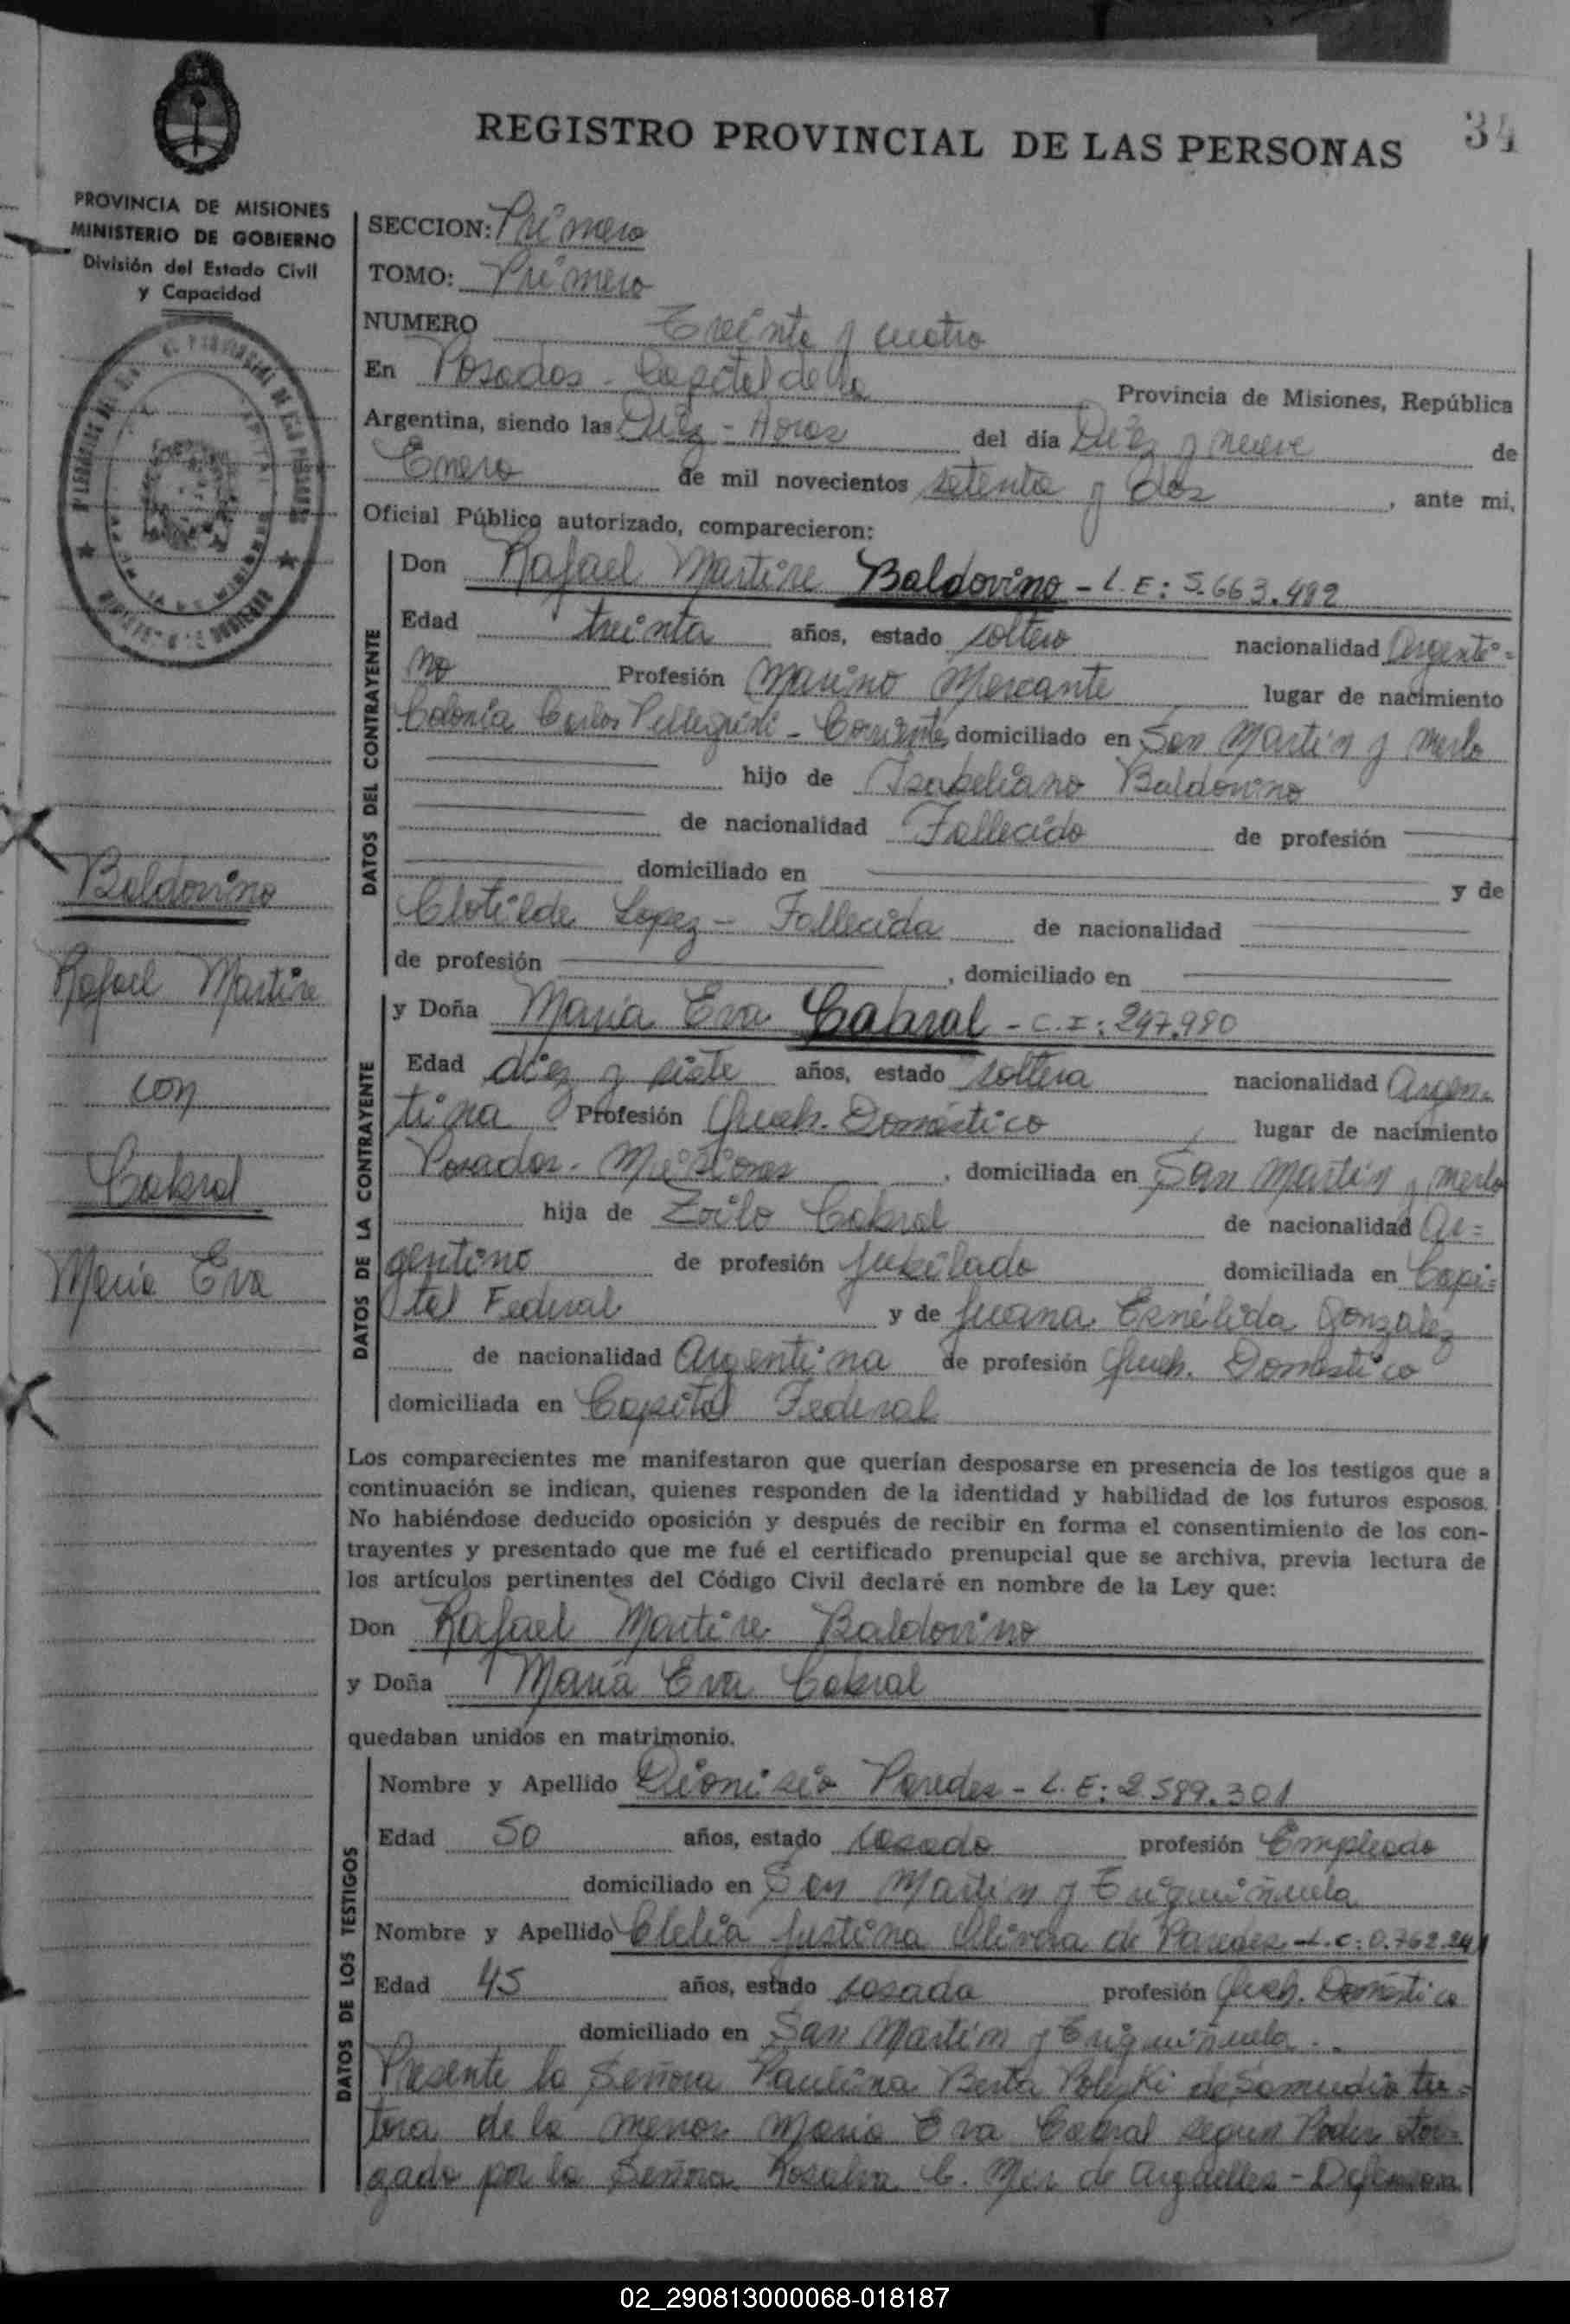 34
REGISTRO PROVINCIAL DE LAS PERSONAS
PROVINCIA DE MISIONES
MINISTERIO DE GOBIERNO
División del Estado Civil
y Capacidad
SECCION: Primera
TOMO: Primero
NUMERO Treinta y cuatro
En Posadas - Capital de la Provincia de Misiones, República
Argentina, siendo las Diez - Horas del día Diez y nueve de
Enero de mil novecientos setenta y dos, ante mi,
Oficial Público autorizado, comparecieron:
DATOS DEL CONTRAYENTE
Don Rafael Martire Baldovino - L.E: 5.663.492
Edad treinta años, estado soltero nacionalidad Argenti=
no Profesión Marino Mercante lugar de nacimiento
Colonia Carlos Pellegrini - Corrientes domiciliado en San Martín y Merlo
hijo de Isabeliano Baldovino
de nacionalidad Fallecido de profesión
domiciliado en y de
Clotilde Lopez - Fallecida de nacionalidad
de profesión , domiciliado en
DATOS DE LA CONTRAYENTE
y Doña María Eva Cabral - C.I: 247.980
Edad diez y siete años, estado soltera nacionalidad Argen=
tina Profesión Queh. Doméstico lugar de nacimiento
Posadas - Misiones, domiciliada en San Martín y Merlo
hija de Zoilo Cabral de nacionalidad Ar=
gentino de profesión Jubilado domiciliada en Capi=
tal Federal y de Juana Ernélida Gonzalez
de nacionalidad Argentina de profesión Queh. Domestico
domiciliada en Capital Federal
Los comparecientes me manifestaron que querían desposarse en presencia de los testigos que a
continuación se indican, quienes responden de la identidad y habilidad de los futuros esposos.
No habiéndose deducido oposición y después de recibir en forma el consentimiento de los con-
trayentes y presentado que me fué el certificado prenupcial que se archiva, previa lectura de
los artículos pertinentes del Código Civil declaré en nombre de la Ley que:
Don Rafael Martire Baldovino
y Doña María Eva Cabral
quedaban unidos en matrimonio.
DATOS DE LOS TESTIGOS
Nombre y Apellido Dionisio Paredes - L.E: 2.589.301
Edad 50 años, estado casado profesión Empleado
domiciliado en San Martín y Eriguiñuela
Nombre y Apellido Clelia Justina de Paredes - L.C: 0.762.241
Edad 45 años, estado casada profesión Queh. Doméstico
domiciliado en San Martín y Eriguiñuela
Presente la Señora Paulina Berta de Samudio tu=
tora de la menor María Eva Cabral según Poder otor=
gado por la Señora Rosalva C. de Arguelles - Defensora
Baldovino
Rafael Martire
con
Cabral
María Eva
02_290813000068-018187